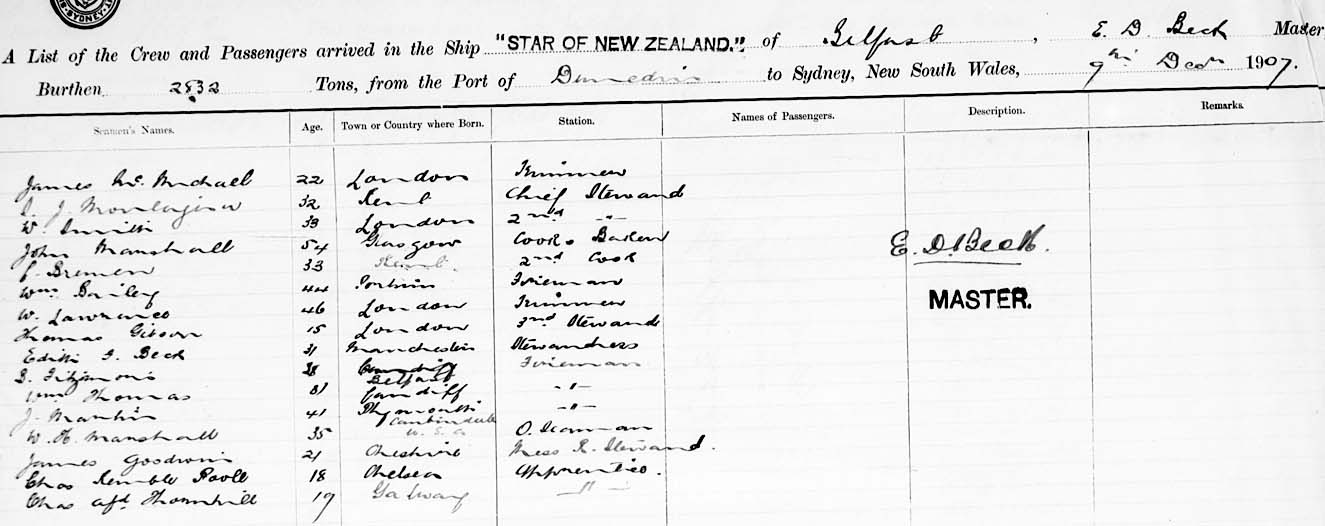 SYDNEY
A List of the Crew and Passengers arrived in the Ship "STAR OF NEW ZEALAND." of Belfast, E. D. Beck Master
Burthen 2832 Tons, from the Port of Dunedin to Sydney, New South Wales, 9th Decr 1907.
Seamen's Names. Age. Town or Country where Born. Station. Names of Passengers. Description. Remarks.
James Mc Michael 22 London Trimmer
J. 32 Kent Chief Steward
W. Smith 33 London 2nd -"-
John Marshall 54 Glasgow Cook & Baker
Bremer 33 Kent. 2nd Cook
Wm Bailey 44 Fireman
W. Lawrence 46 London Trimmer
Thomas Gibson 15 London 3rd Steward
Edith J. Beck 31 Manchester Stewardess
38 Cardiff Belfast Fireman
Wm Thomas 31 Cardiff -"-
J. Martin 41 Plymouth -"-
W. H. Marshall 35 O. Seaman
James Goodwin 21 Cheshire Mess R. Steward.
Chas Kemble Poole 18 Chelsea Apprentice.
Chas Afd Thornhill 19 Galway -"-
E. D. Beck.
MASTER.